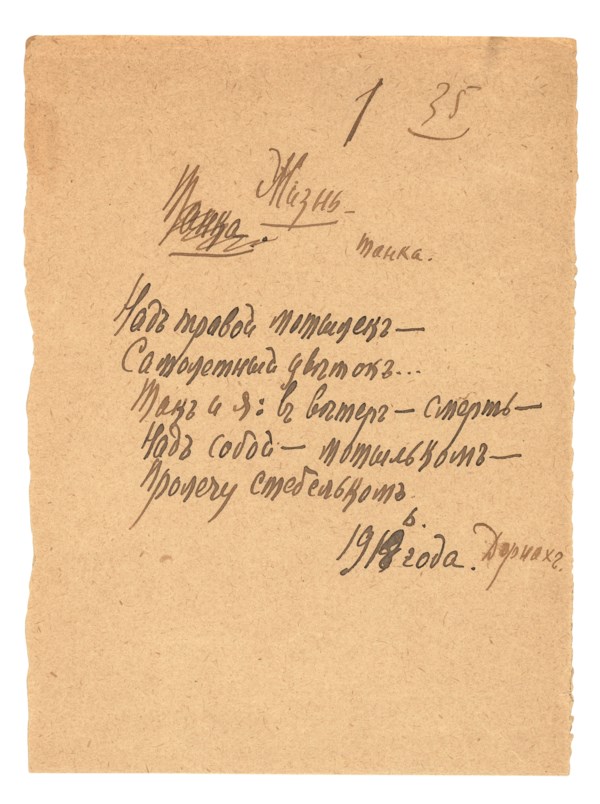 1 35
Жизнь
Танка.
танка.
Надъ травой мотылекъ —
Самолетный цвѣтокъ...
Такъ и я: въ вѣтеръ — смерть —
Надъ собой — мотылькомъ —
Пролечу стебелькомъ.
6.
1918 года. Дорнахъ.